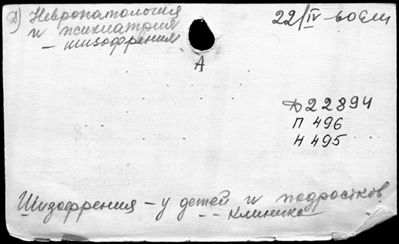 Д) Невропатология
и психиатрия
- шизофрения
22/IV-60 ЕМ
А
Д22894
П 496
Н 495
Шизофрения - у детей и подростков
-- клиника